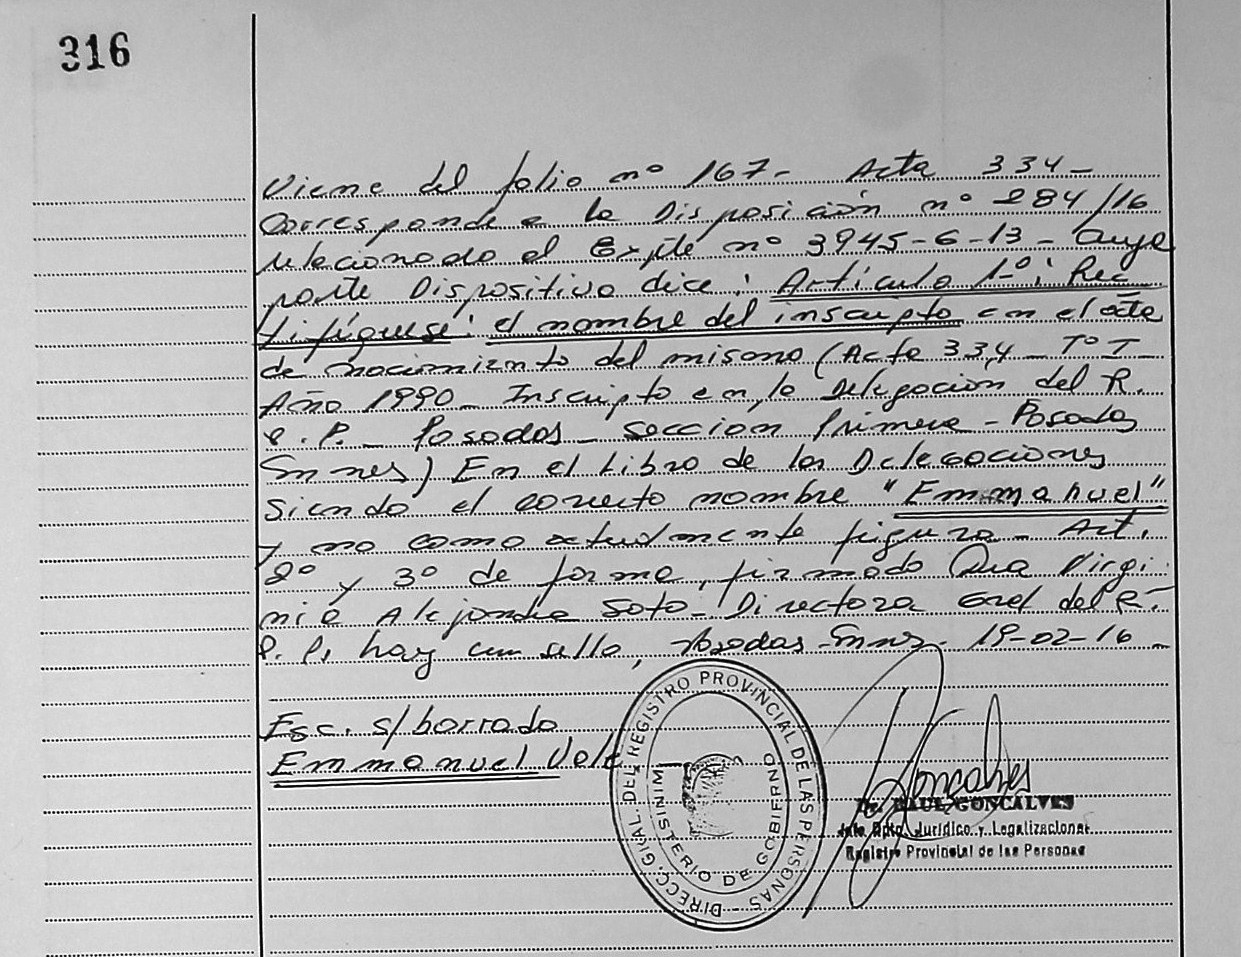 316
Viene del folio nº 167- Acta 334-
Corresponde a la Disposición nº 284/16
relacionado al Expte nº 3945-6-13- Cuya
parte Dispositivo dice: Artículo 1º: Rec
tifíquese: el nombre del inscripto en el acta
de nacimiento del mismo (Acta 334- Tº I-
Año 1990- Inscripto en la Delegación del R.
P. P. Posadas- Sección Primera- Posadas
Smnes) En el Libro de las Delegaciones
Siendo el correcto nombre "Emmanuel"
y no como actualmente figura- Art.
2º y 3º de forma, firmado Dra Virgi
nia Alejandra Soto- Directora Gral del R.
P. P. hay un sello, Posadas-Smnes- 19-02-16-
Esc. s/borrado
Emmanuel Vale
DIRECC. GRAL. DEL REGISTRO PROVINCIAL DE LAS PERSONAS
MINISTERIO DE GOBIERNO
Goncalves
Dr. RAUL GONCALVES
Jefe Dpto. Jurídico y Legalizaciones
Registro Provincial de las Personas